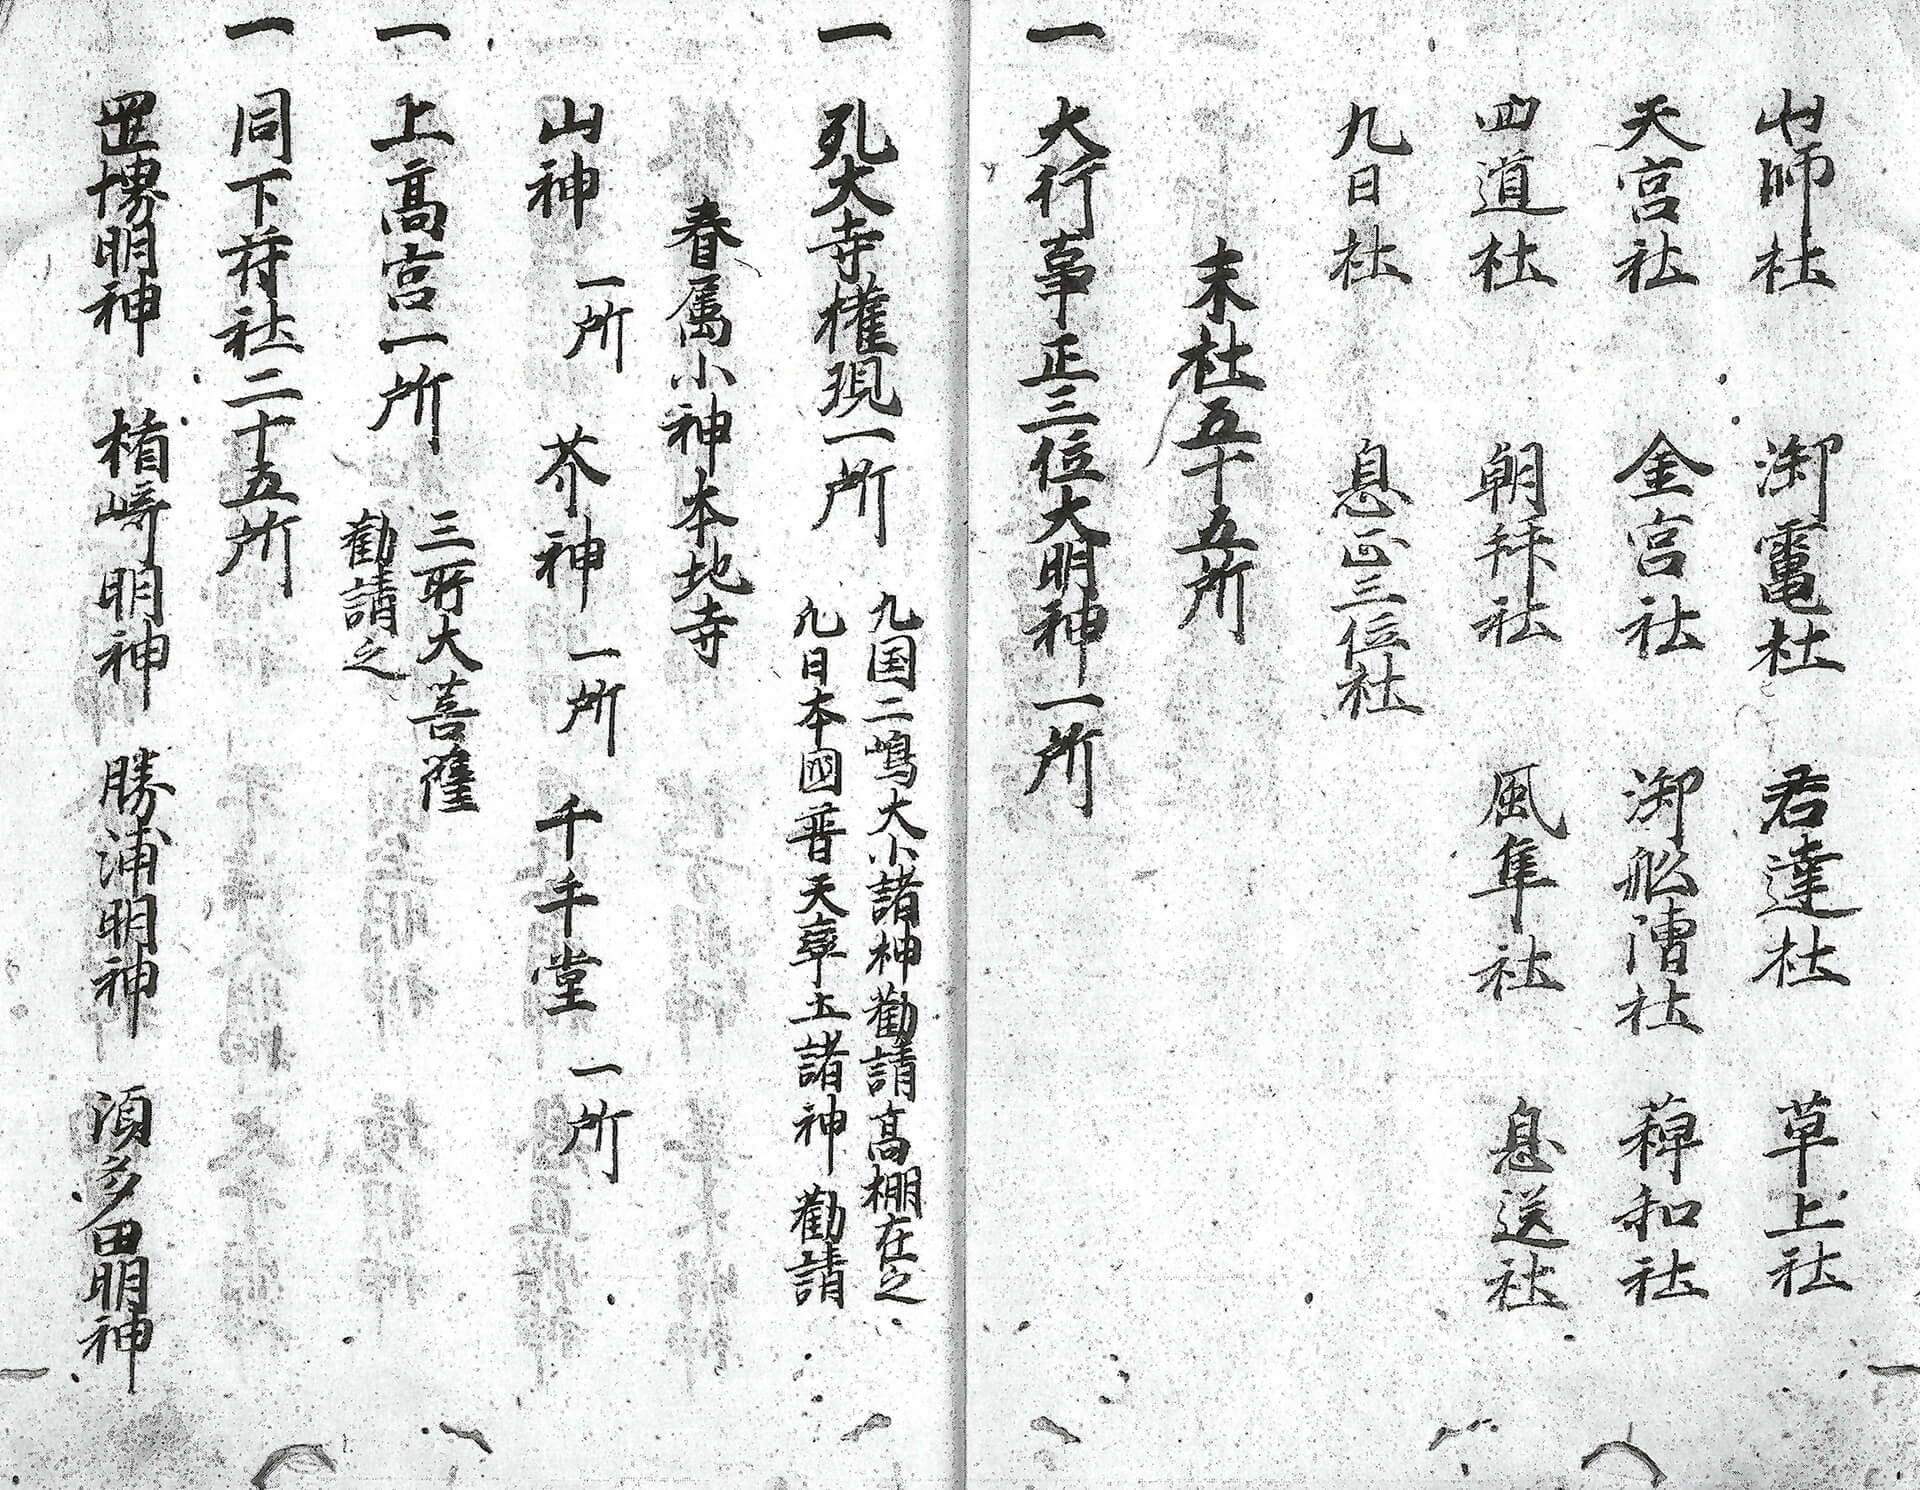 山師社　御竃社　君達社　草上社
天宮社　金宮社　御舩漕社　稗和社
四道社　朝拝社　風隼社　息送社
九日社　息正三位社
末社五十五所
一　大行事正三位大明神一所
一　孔大寺権現一所　九国二嶋大小諸神勧請高棚在之
九日本國普天率土諸神勧請
眷属小神本地寺
山神　一所　芥神　一所　千手堂　一所
一　上高宮一所　三所大菩薩
勧請之
一　同下符社二十五所
明神　楯崎明神　勝浦明神　須多田明神